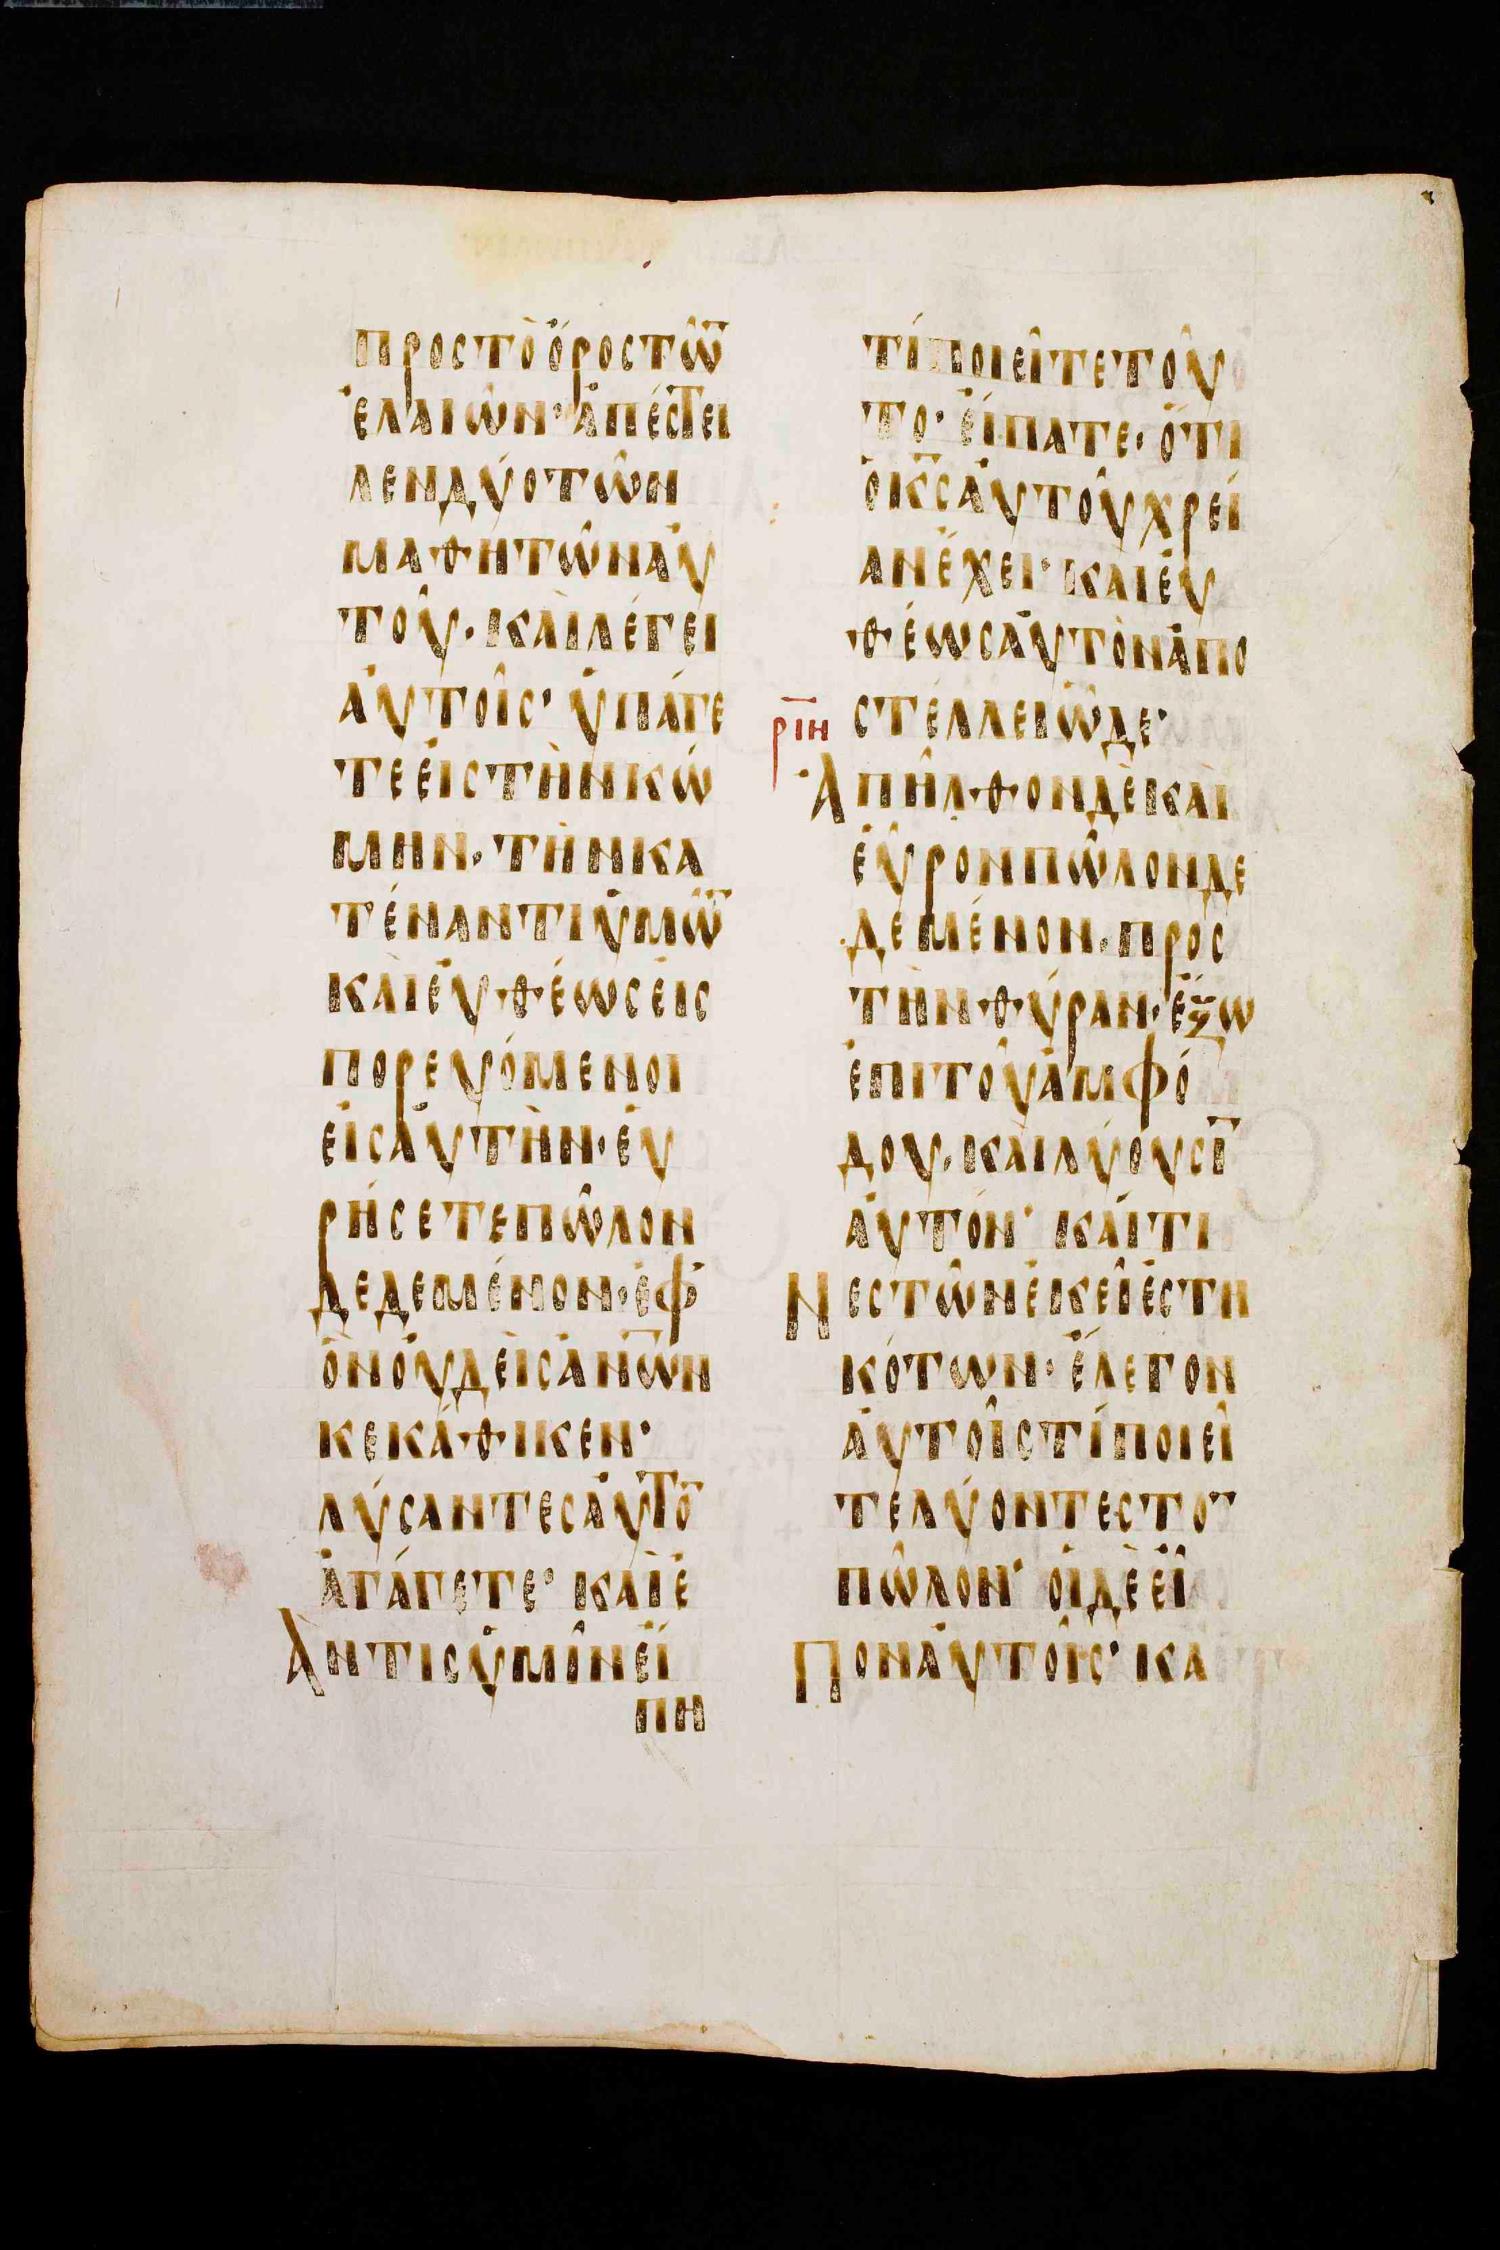 προς τὸ ὄρος τῶ̅
ἐλαιῶν· ἀπέστει
λεν δύο τῶν
μαθητῶν αὐ
τοῦ, καὶ λέγει
αὐτοῖς· ὑπάγε
τε εἰς τὴν κώ
μην, τὴν κα
τέναντι ὑμῶ̅
καὶ εὐθέως εἰς
πορευόμενοι
εἰς αὐτὴν· εὑ
ρήσετε πῶλον
δεδεμένον· ἐφ
ὃν οὐδεὶς ἀν̅ω̅ν
κεκάθικεν·
λύσαντες αὐτο̅
ἀγάγετε· καὶ ἐ
Άν τις ὑμῖν εἴ
πη
τί ποιεῖτε τοῦ
το· εἴπατε· ὅτι
ὁ κ̅ς̅ αὐτοῦ χρεί
αν ἔχει· καὶ εὐ
θέως αὐτὸν ἀπο
στέλλει ὧδε·
ρ̅ι̅η̅
Ἀπῆλθον δὲ καὶ
εὗρον πῶλον δε
δεμένον, προς
τὴν θύραν· ἔξω
ἐπι τοῦ ἀμφό
δου, καὶ λύουσι̅
αὐτόν· καί τι
Νες τῶν ἐκεῖ ἑστη
κότων· ἔλεγον
αὐτοῖς τί ποιεῖ
τε λύοντες το̅
πῶλον· οἱ δὲ εἶ
Πον αὐτοῖς· κα